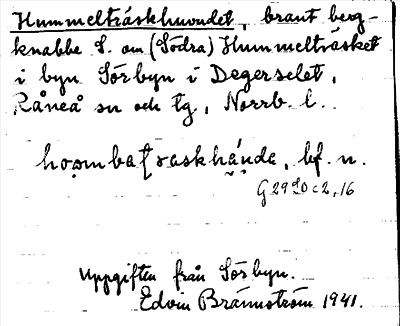 Hummelträskhuvudet, brant berg-
knabbe S. om (Södra) Hummelträsket
i byn Sörbyn i Degerselet,
Råneå sn och tg, Norrb. l.
bf. n.
G 29
Uppgiften från Sörbyn.
Edvin Brännström 1941.